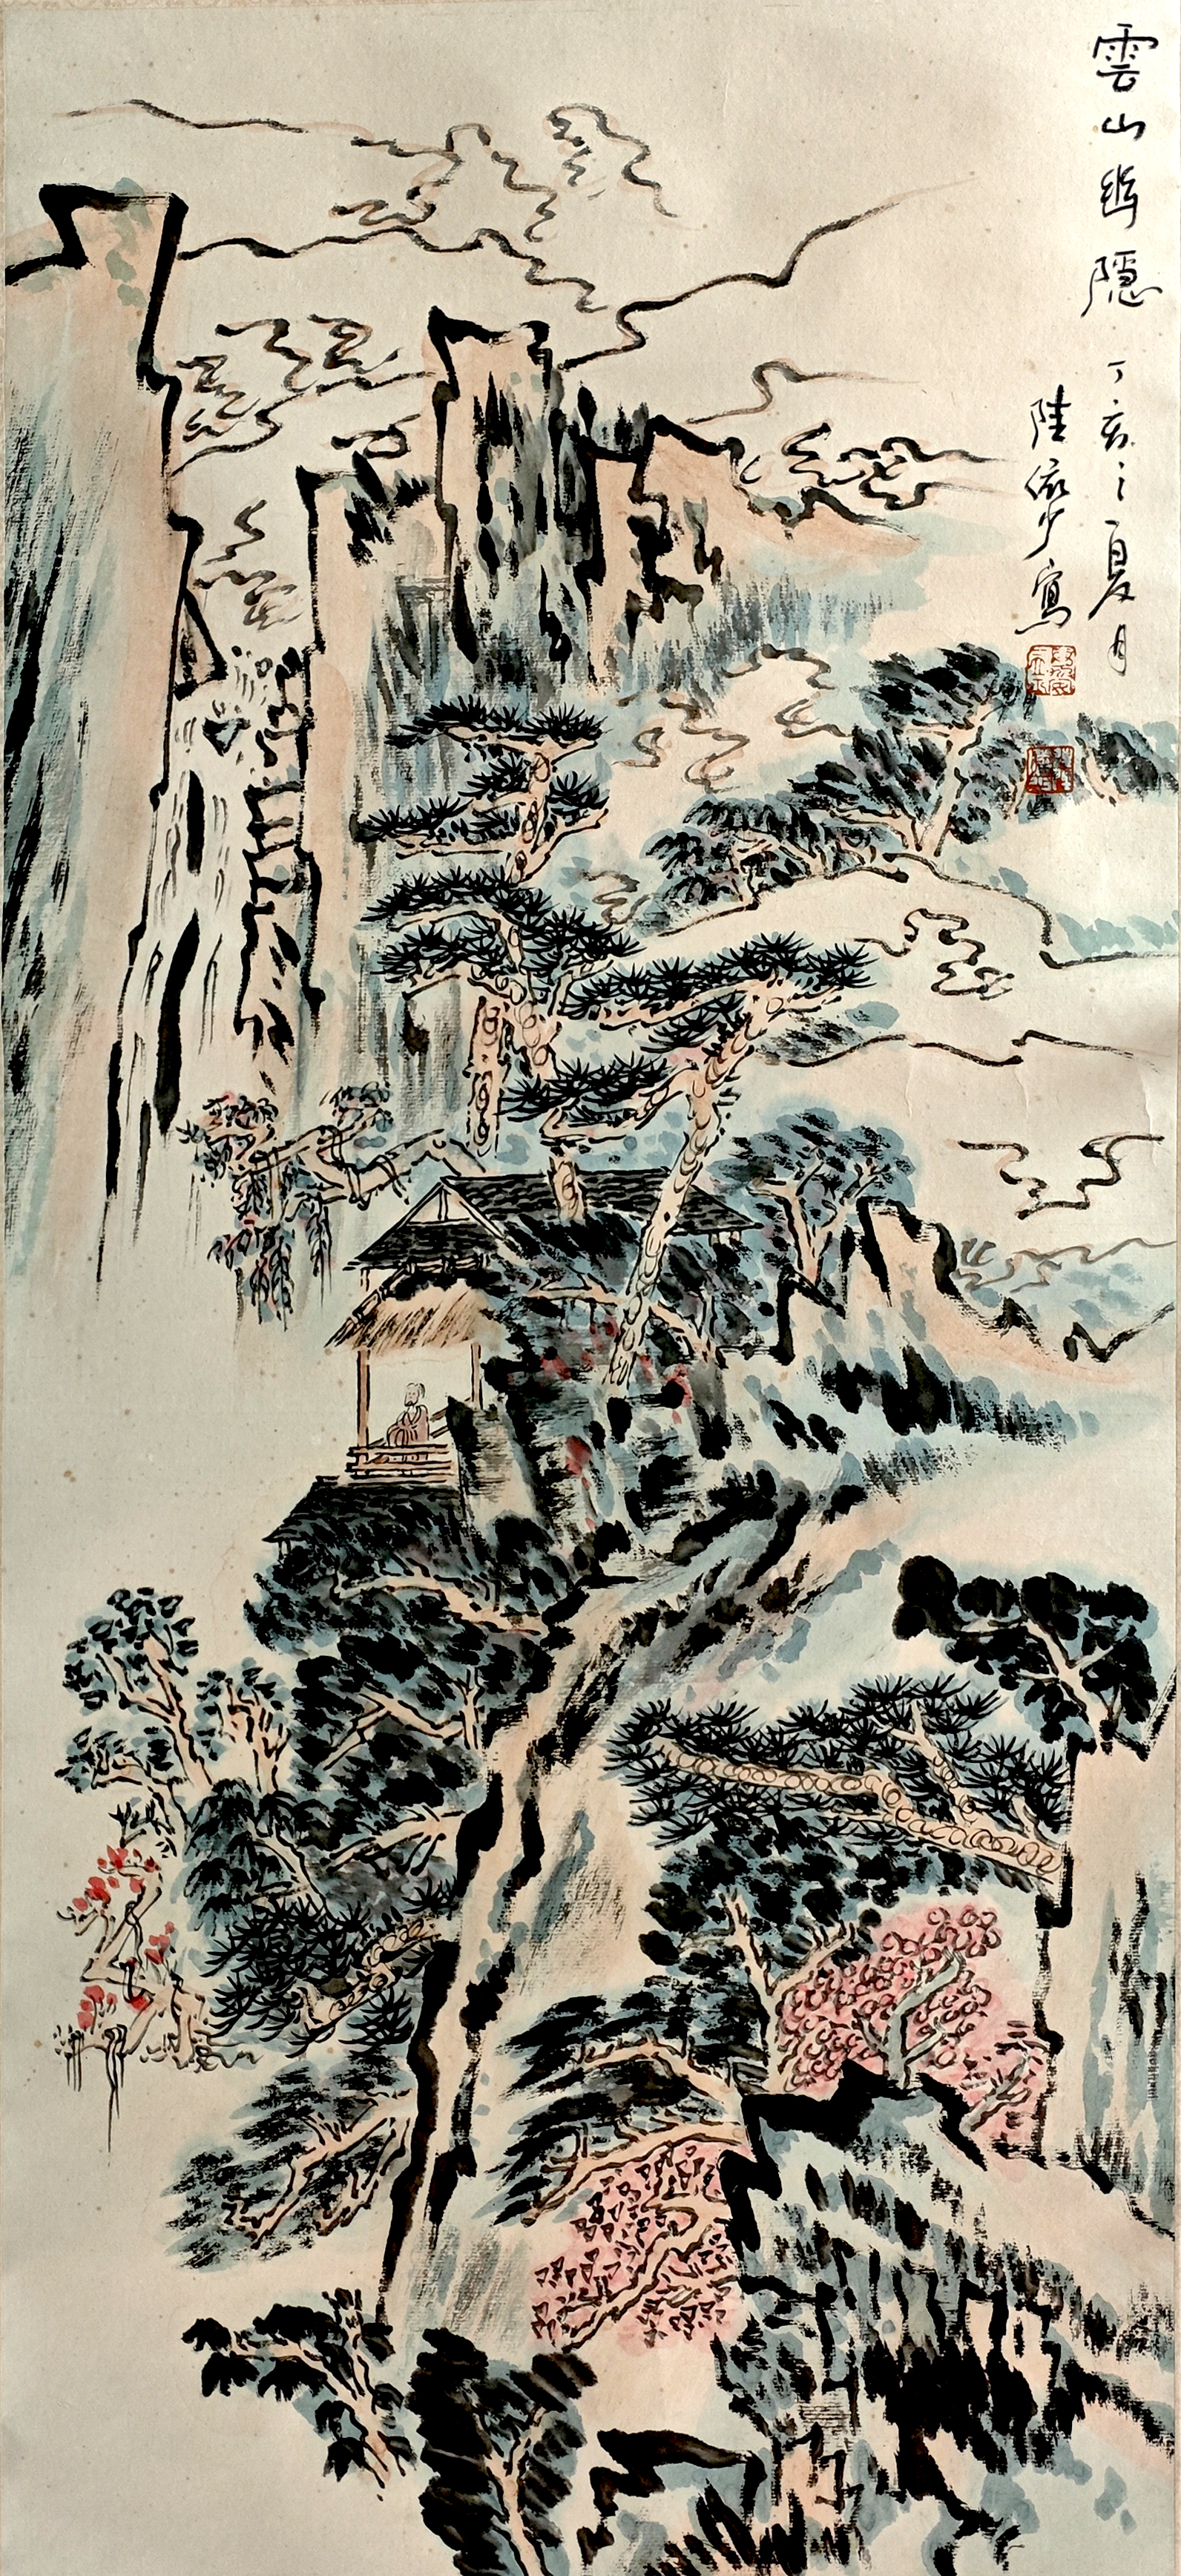 雲山幽隱 丁亥之夏月
陸儼少寫